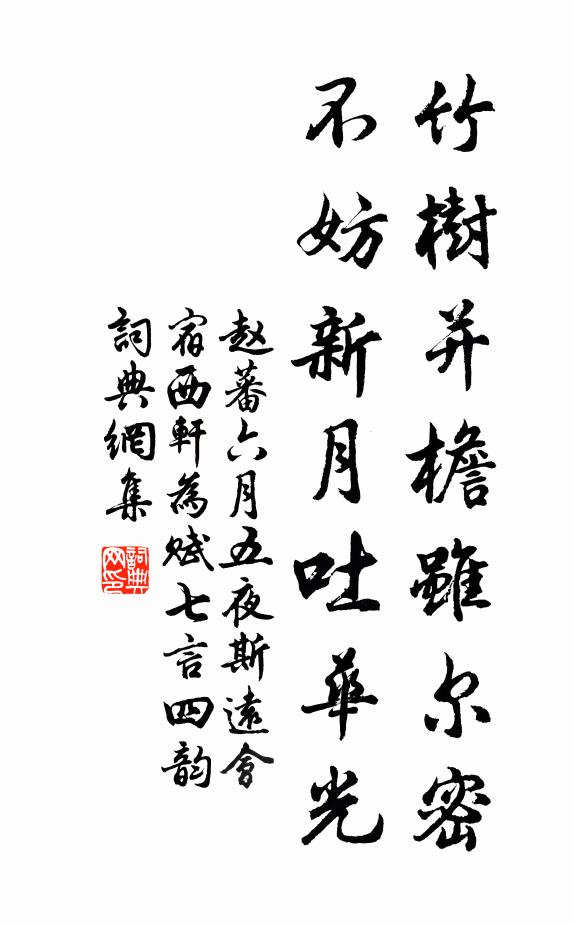 竹樹并檐雖尔密
不妨新月吐華光
赵蕃六月五夜斯遠會
宿西軒為赋七言四韵
詞典網集
詞典
网印